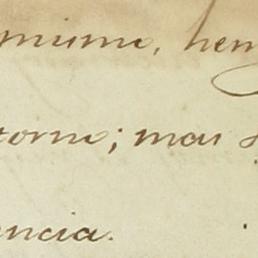 miumi, hen
torni; mas s
ncia.